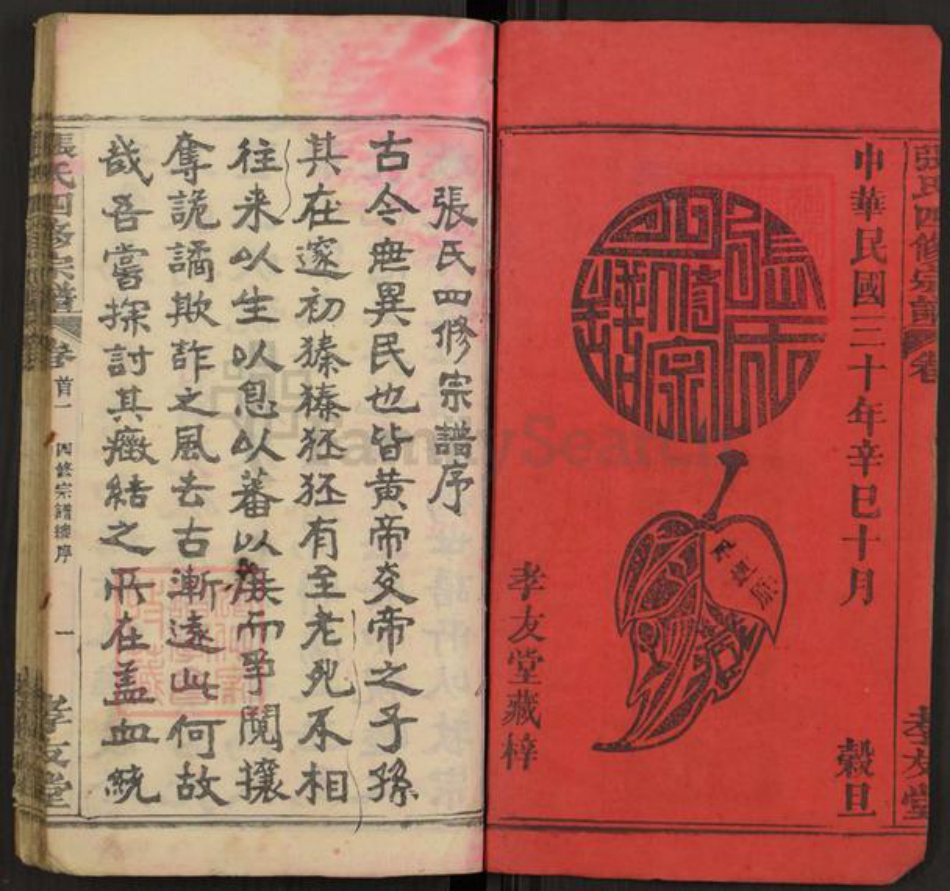 中華民國三十年辛巳十月
穀旦
張氏四修宗譜
孝友堂藏梓
張氏四修宗譜
卷
孝友堂
張氏四修宗譜序
古今無異民也皆黃帝炎帝之子孫
其在邃初獉獉狉狉有至老死不相
往来以生以息以蕃以族而爭鬩攘
奪詭譎欺詐之風去古漸遠此何故
哉吾嘗探討其癥結之所在盖血統
張氏四修宗譜
卷首一
四修宗譜總序
一
孝友堂
FamilySearch